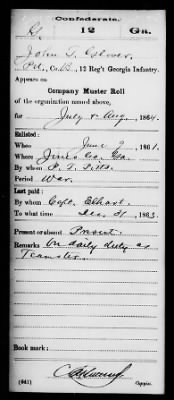 Confederate.
G. 12 Ga.
John T. Glover
Pvt., Co. B., 12 Reg't Georgia Infantry.
Appears on
Company Muster Roll
of the organization named above,
for July & Aug, 1864.
Enlisted:
When June 9, 1861.
Where Jones Co. Ga.
By whom P. T. Pitts
Period War.
Last paid:
By whom Capt. Elhart
To what time Dec. 31, 1863.
Present or absent Present.
Remarks On daily duty as
Teamster
Book mark:
(641) Copyist.